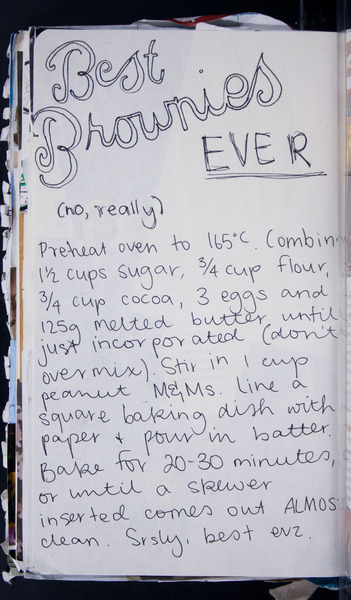 Best
Brownies
EVER
(no, really)
Preheat oven to 165°C. Combin
1½ cups sugar, ¾ cup flour,
¾ cup cocoa, 3 eggs and
125g melted butter until
just incorporated (don't
overmix). Stir in 1 cup
peanut M&Ms. Line a
square baking dish with
paper + pour in batter.
Bake for 20-30 minutes,
or until a skewer
inserted comes out ALMOS
clean. Srsly, best evz.